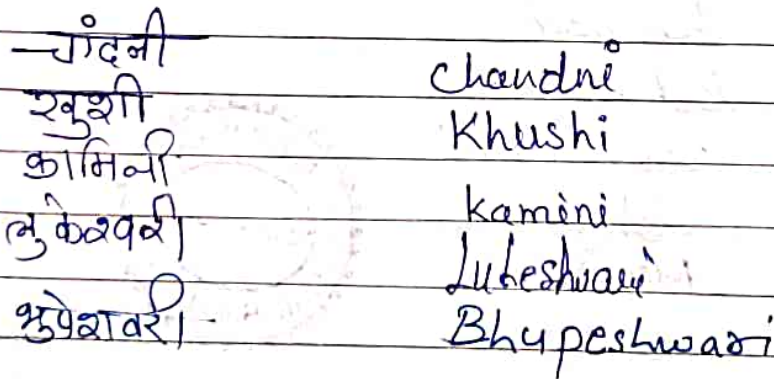 चांदनी Chandni
खुशी Khushi
कामिनी Kamini
लुकेश्वरी Lukeshwari
भुपेशवरी Bhupeshwari